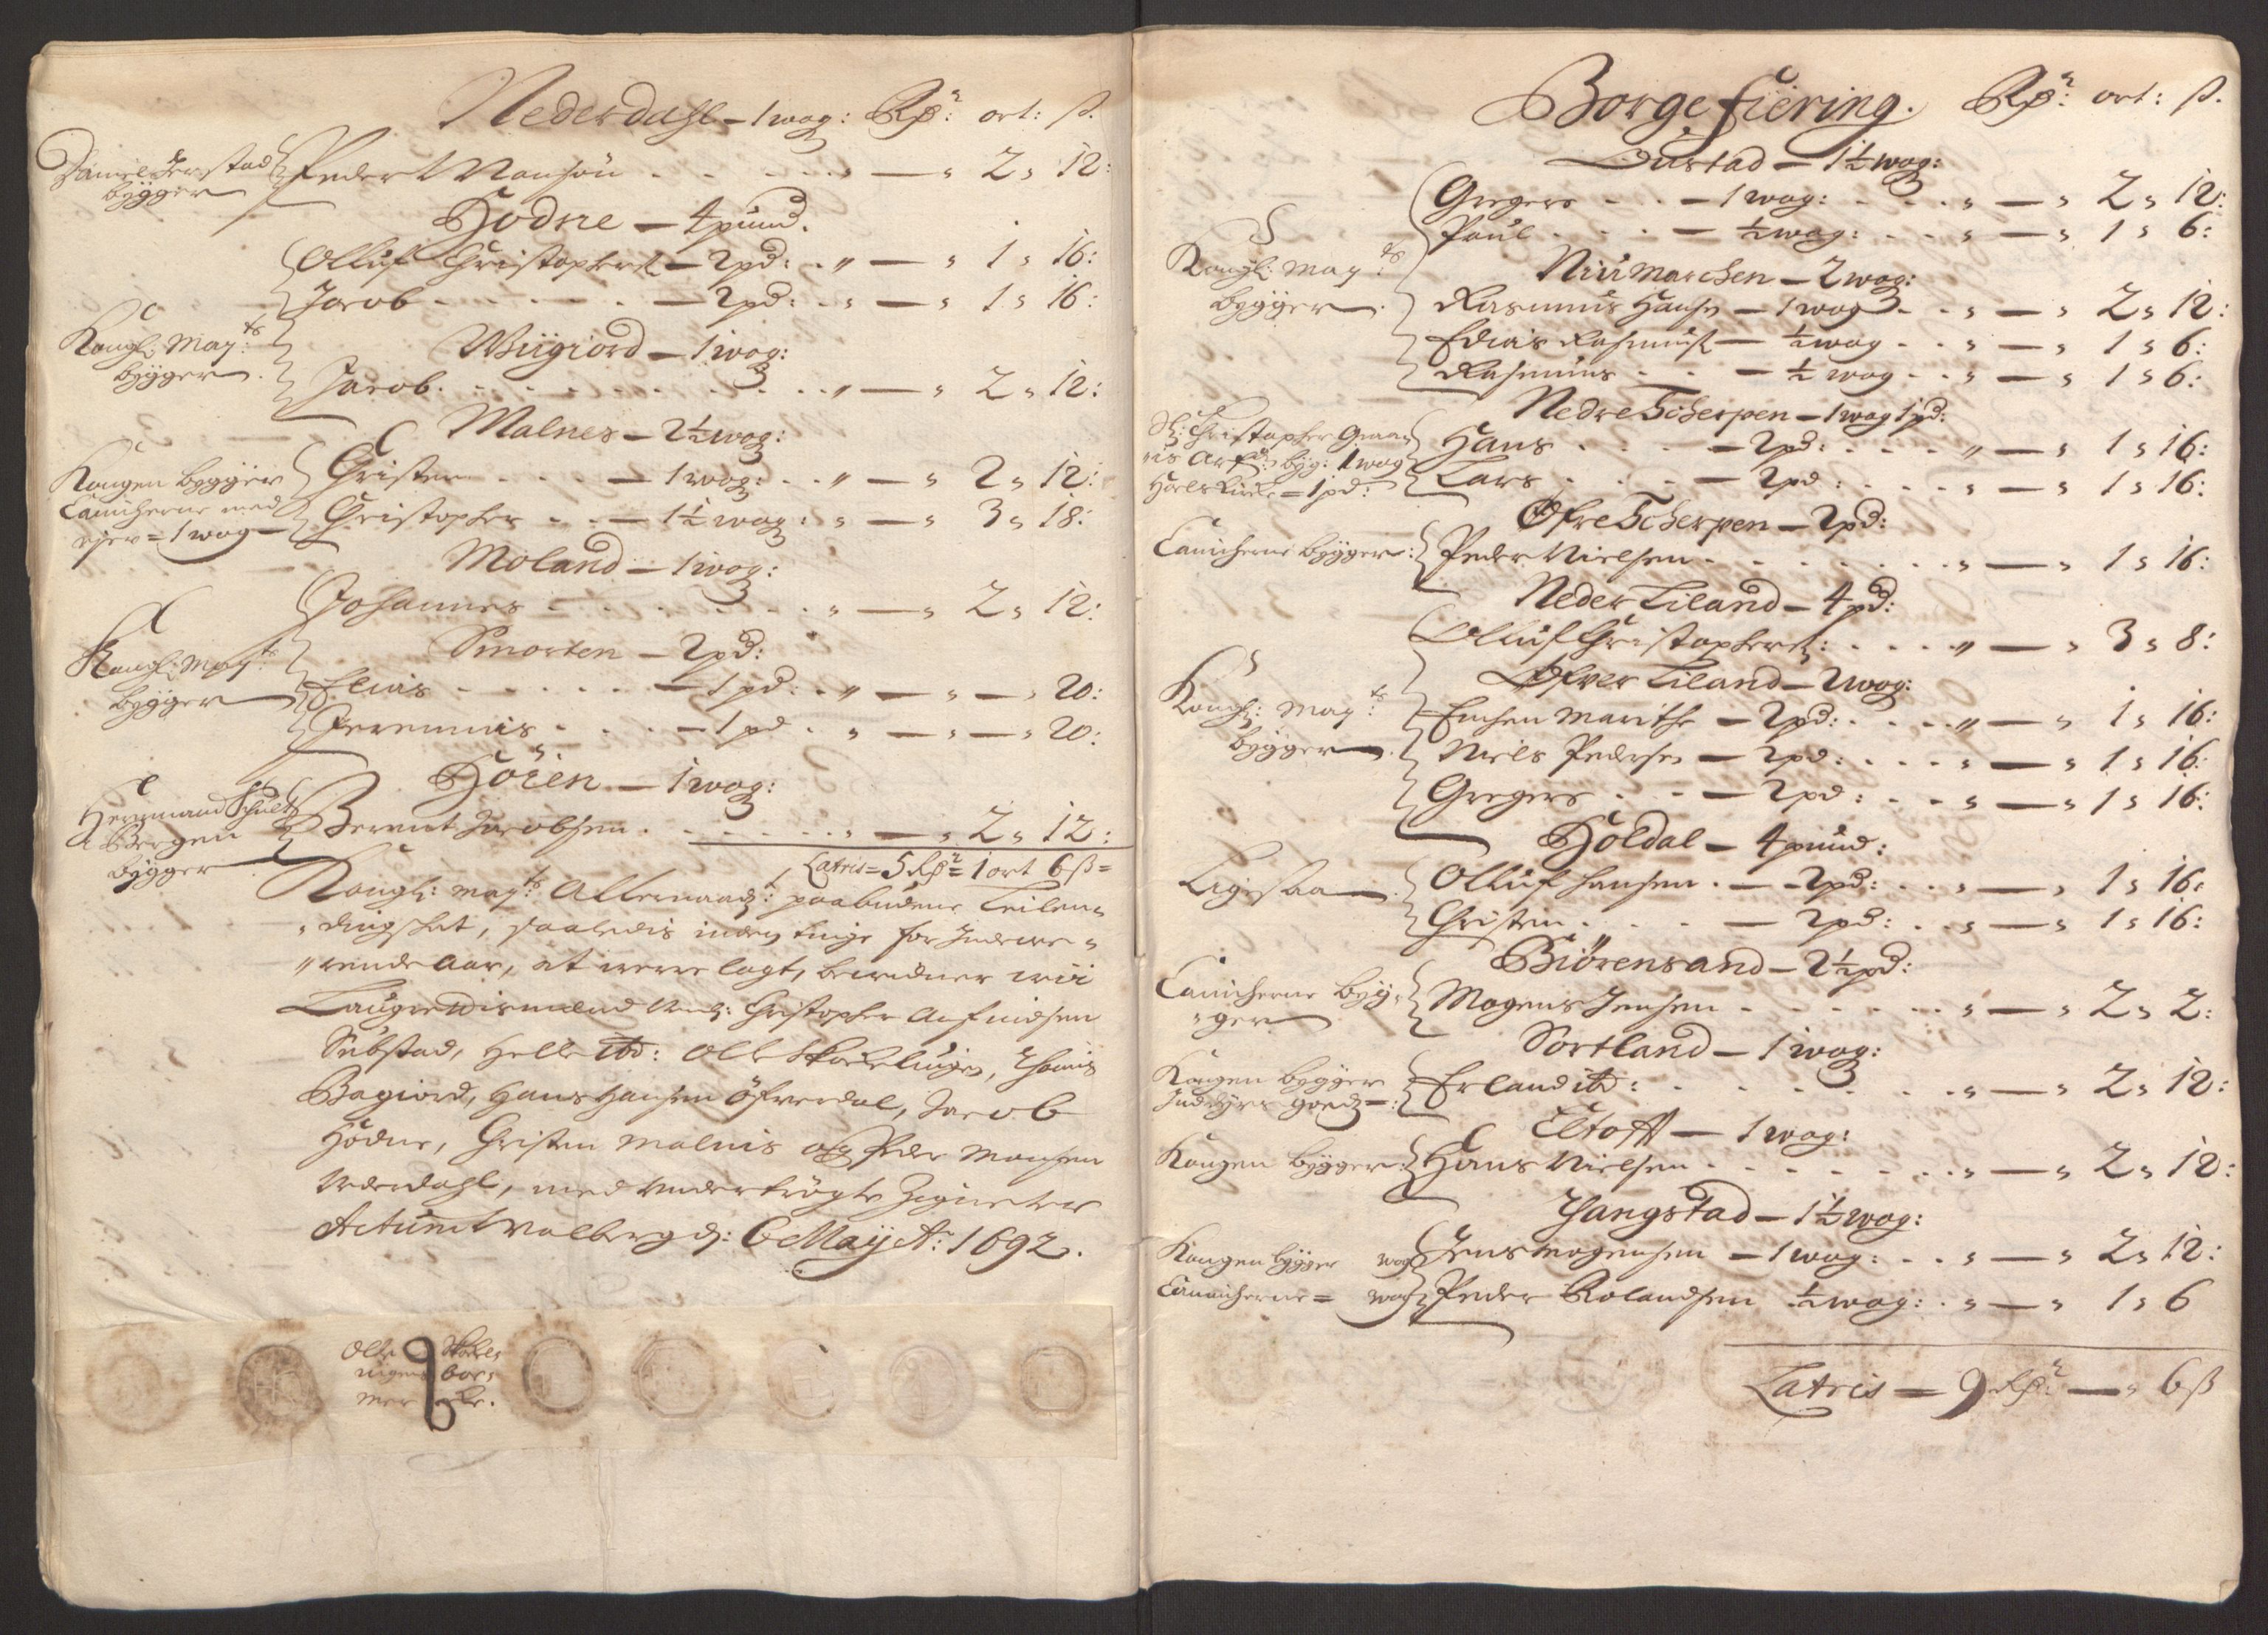 Nederdahl – 1 wog: Rdr: ort: ß.
Daniel Jerstad
bygger
Peder Monsøn . . . . „ — „ 2 „ 12:
Hodne – 4 pund.
Olluf Christophers – 2 pd: . „ — „ 1 „ 16:
Jacob . . . . – 2 pd: . „ — „ 1 „ 16:
Kongl: May:ts
bygger
Wiigiord – 1 wog:
Jacob . . . . . „ — „ 2 „ 12:
Malnes – 2½ wog:
Kongen bygger
Canicherne med
eyer = 1 wog
Christen . . . – 1 wog: . . „ — „ 2 „ 12:
Christopher . . – 1½ wog: „ — „ 3 „ 18:
Moland – 1 wog:
Johannes . . . . „ — „ 2 „ 12:
Kongl: May:ts
bygger
Smorten – 2 pd:
Elias . . . . – 1 pd: . „ — „ — „ 20:
Jeremias . . . – 1 pd . „ — „ — „ 20:
Höien – 1 wog:
Herrmand Schult
Bergen
bygger
Berent Jacobsen . . . . „ — „ 2 „ 12:
Latris = 5 Rdr = 1 ort 6 ß =
Kongl: May:ts Allernaad: paabudene Leilen„
„dingskat, saaledis inden tinge for Indewe„
„rende Aar, at werre lagt, bewidner wii
Laugrettismænd Nml: Christopher Arfindsen
Substad, Helle ibd: Olle Skoelluigen, Thomis
Bagiord, Hans Hansen Öfverdal, Jacob
Hodne, Christen Malnis og Peder Monsen
Nederdahl, med undertrögte Zigneter
Actum Walberg d: 6 Maij Ao: 1692.
Olle Skoel„
uigens boe„
mer ke.
Borge fiering. Rdr: ort: ß.
Justad – 1½ wog:
Gregers . . – 1 wog: . . . „ — „ 2 „ 12:
Poul . . . – ½ wog: . . „ — „ 1 „ 6:
Kongl: May:ts
bygger
Niumarchen – 2 wog:
Rasmus Hansen – 1 wog . . „ — „ 2 „ 12:
Edias Rasmus – ½ wog . . „ — „ 1 „ 6:
Rasmus . . – ½ wog . . „ — „ 1 „ 6:
Nedre Scherpen – 1 wog 1 pd:
Sl: Christopher
Arf: byg: 1 wog
Hoels kirke = 1 pd:
Hans . . . . – 2 pd: . . . „ — „ 1 „ 16:
Lars . . . – 2 pd: . . . „ — „ 1 „ 16:
Öfre Scherpen – 2 pd:
Canicherne bygger:
Peder Nielsen . . . . . „ — „ 1 „ 16:
Neder Liland – 4 pd:
Olluf Christophers: . . . . „ — „ 3 „ 8:
Öfver Liland – 2 wog:
Kongl: May:ts
bygger
Enchen Marithe – 2 pd: . . . „ — „ 1 „ 16:
Niels Pedersen – 2 pd: . . . „ — „ 1 „ 16:
Gregers . . – 2 pd: . . „ — „ 1 „ 16:
Holdal – 4 pund:
Ligesaa
Olluf Hansen . – 2 pd: . . „ — „ 1 „ 16:
Christen . . . – 2 pd: . . „ — „ 1 „ 16:
Biörensand – 2½ pd:
Canicherne byg„
„ger
Mogens Jensen . . . . . „ — „ 2 „ 2:
Sortland – 1 wog:
Kongen bygger
goedz =:
Erland ibd: . . . . „ — „ 2 „ 12:
Eltoft – 1 wog:
Kongen bygger:
Hans Nielsen . . . . . „ — „ 2 „ 12:
Hangstad – 1½ wog:
Kongen bygger wog
Jens Mogensen – 1 wog: . . „ — „ 2 „ 12:
Canicherne = wog
Peder Rolandsen ½ wog: . „ — „ 1 „ 6
Latris = 9 Rdr: — „ 6 ß